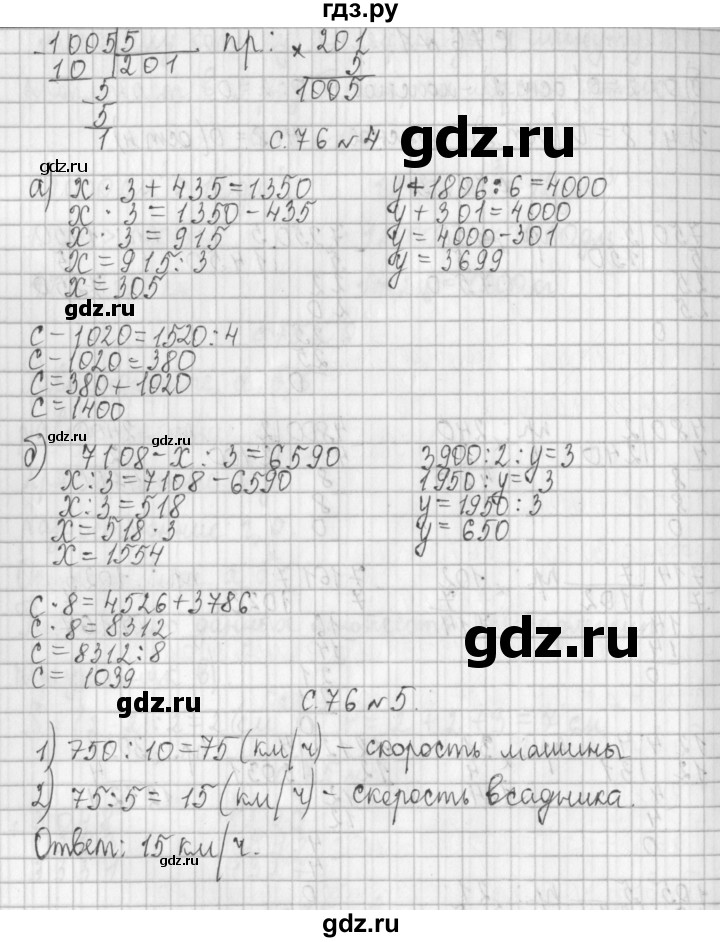 гдз.ру
1005 5 пр: × 201
10 201 5
5 1005
5
1
с. 76 №4
gdz.ru
gdz.ru
а) x · 3 + 435 = 1350
x · 3 = 1350 - 435
x · 3 = 915
x = 915 : 3
x = 305
y + 1806 : 6 = 4000
y + 301 = 4000
y = 4000 - 301
y = 3699
gdz.ru
c - 1020 = 1520 : 4
c - 1020 = 380
c = 380 + 1020
c = 1400
gdz.ru
gdz.ru
б) 7108 - x : 3 = 6590
x : 3 = 7108 - 6590
x : 3 = 518
x = 518 · 3
x = 1554
3900 : 2 : y = 3
1950 : y = 3
y = 1950 : 3
y = 650
c · 8 = 4526 + 3786
c · 8 = 8312
c = 8312 : 8
c = 1039
gdz.ru
gdz.ru
с. 76 №5.
1) 750 : 10 = 75 (км/ч) - скорость машины
2) 75 : 5 = 15 (км/ч) - скорость всадника.
Ответ: 15 км/ч.
gdz.ru
gdz.ru
gdz.ru